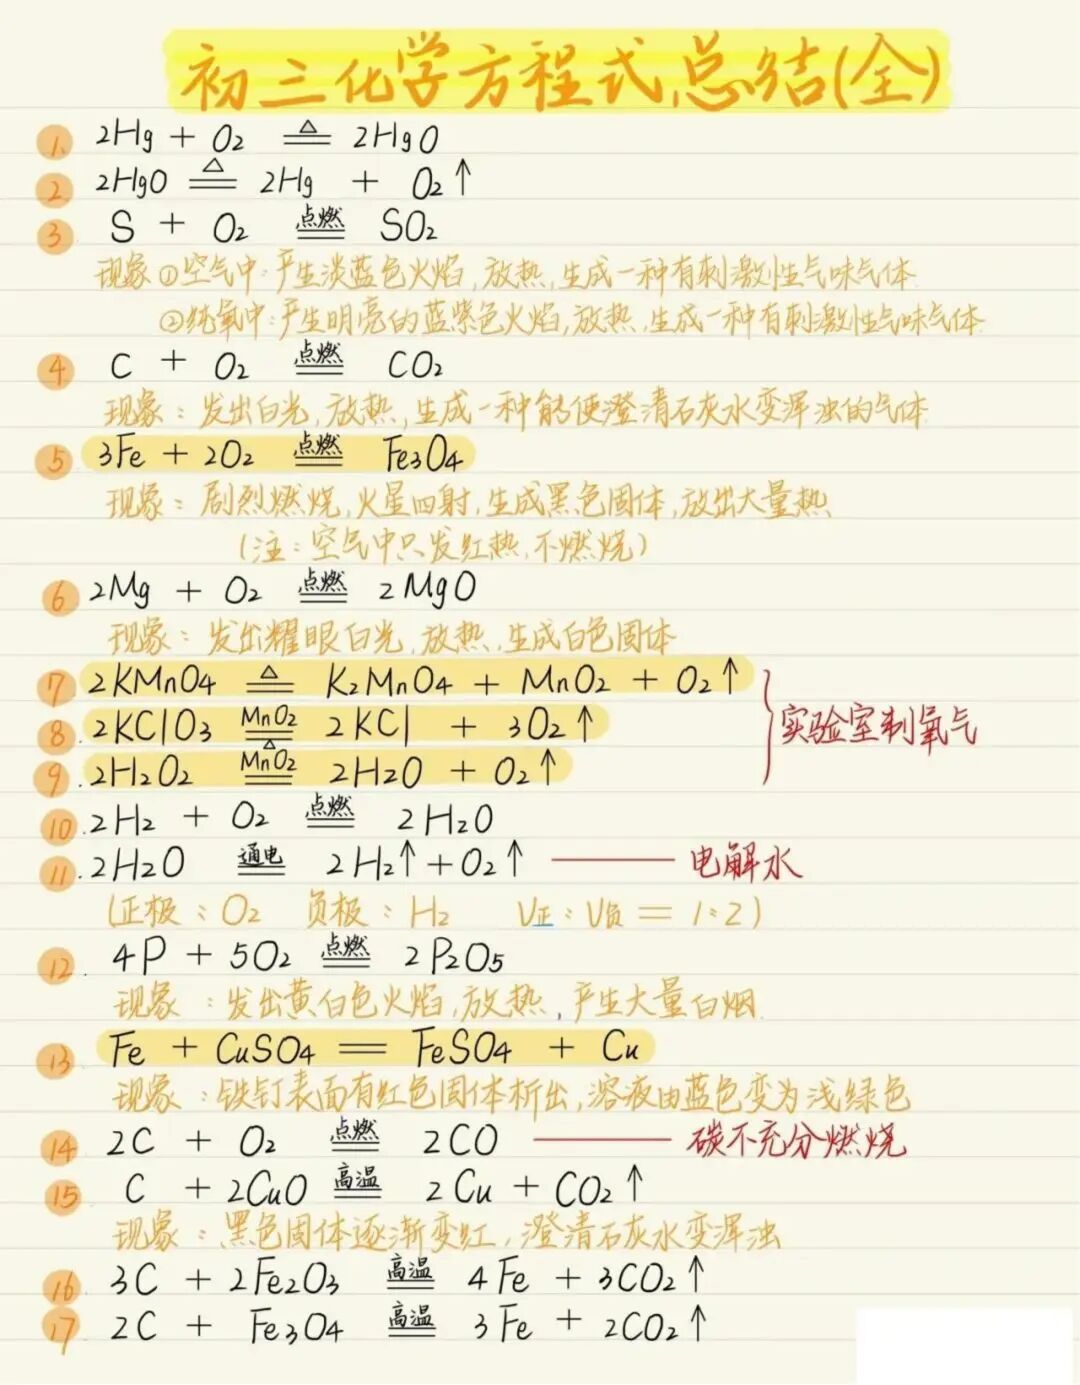 初三化学方程式总结(全)
1. 2Hg + O₂ ≜ 2HgO
2. 2HgO ≜ 2Hg + O₂↑
3 S + O₂ 点燃 ══ SO₂
现象①空气中:产生淡蓝色火焰,放热,生成一种有刺激性气味气体.
②纯氧中:产生明亮的蓝紫色火焰,放热,生成一种有刺激性气味气体.
4 C + O₂ 点燃 ══ CO₂
现象:发出白光,放热,生成一种能使澄清石灰水变浑浊的气体
5 3Fe + 2O₂ 点燃 ══ Fe₃O₄
现象:剧烈燃烧,火星四射,生成黑色固体,放出大量热
(注:空气中只发红热,不燃烧)
6 2Mg + O₂ 点燃 ══ 2MgO
现象:发出耀眼白光,放热,生成白色固体
7 2KMnO₄ ≜ K₂MnO₄ + MnO₂ + O₂↑
8. 2KClO₃ MnO₂ ══ △ 2KCl + 3O₂↑
实验室制氧气
9. 2H₂O₂ MnO₂ ══ 2H₂O + O₂↑
10. 2H₂ + O₂ 点燃 ══ 2H₂O
11. 2H₂O 通电 ══ 2H₂↑+O₂↑ —— 电解水
(正极:O₂ 负极:H₂ V正:V负=1:2)
12. 4P + 5O₂ 点燃 ══ 2P₂O₅
现象:发出黄白色火焰,放热,产生大量白烟.
13 Fe + CuSO₄ ══ FeSO₄ + Cu
现象:铁钉表面有红色固体析出,溶液由蓝色变为浅绿色
14 2C + O₂ 点燃 ══ 2CO —— 碳不充分燃烧
15 C + 2CuO 高温 ══ 2Cu + CO₂↑
现象:黑色固体逐渐变红,澄清石灰水变浑浊
16 3C + 2Fe₂O₃ 高温 ══ 4Fe + 3CO₂↑
17 2C + Fe₃O₄ 高温 ══ 3Fe + 2CO₂↑